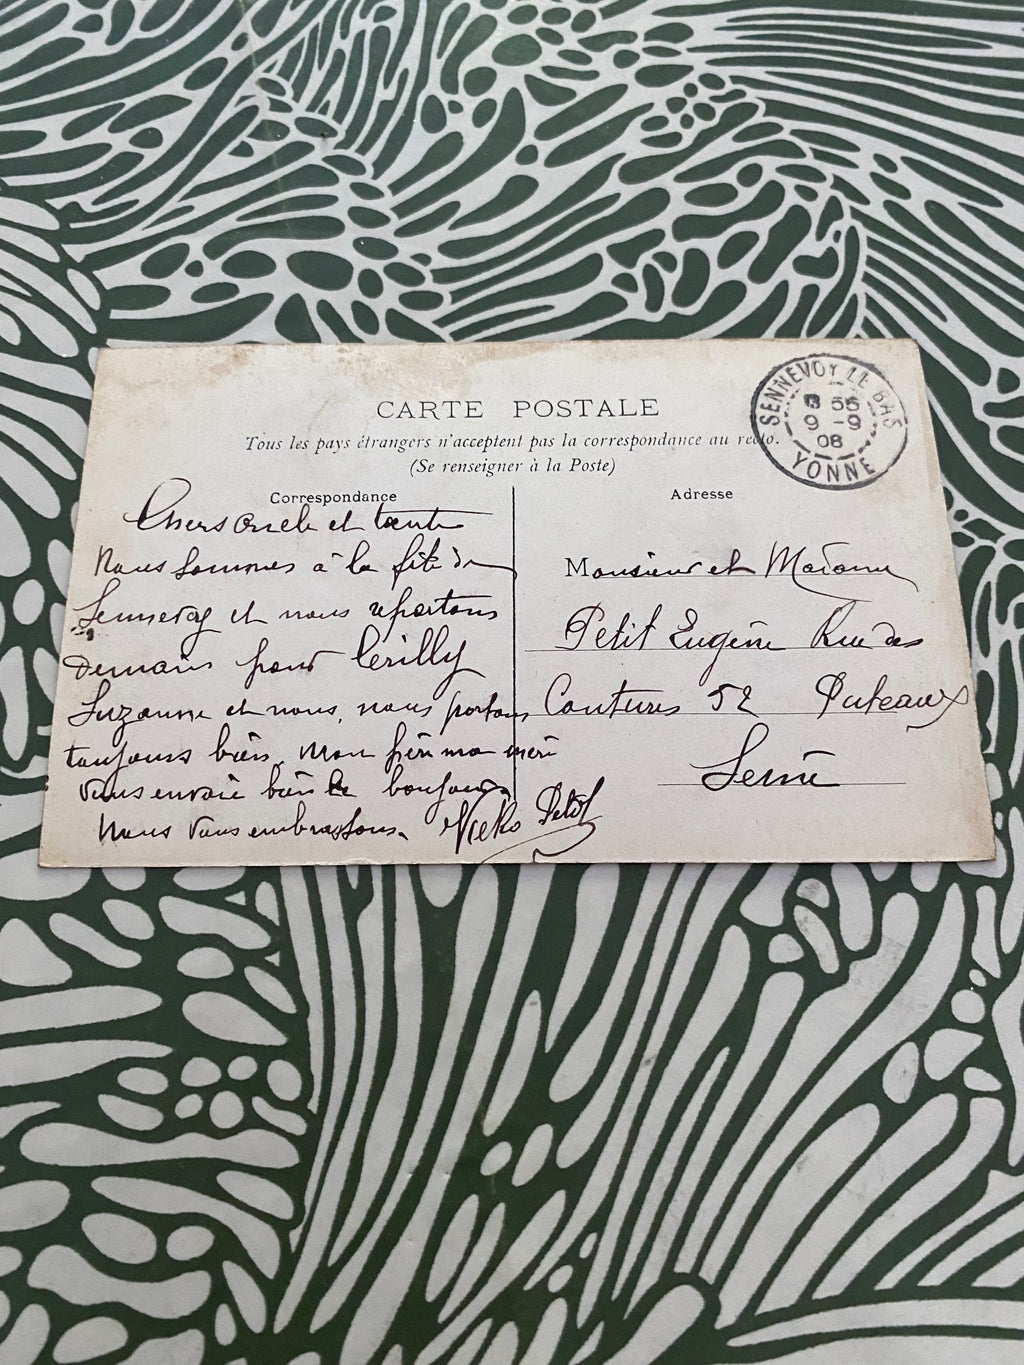 CARTE POSTALE
Tous les pays étrangers n'acceptent pas la correspondance au recto.
(Se renseigner à la Poste)
SENNEVOY LE BAS
55
9 -9
08
YONNE
Correspondance
Chers oncle et tante
Nous sommes à la fête de
Sennevoy et nous repartons
demain pour Cérilly
Suzanne et nous, nous portons
toujours bien. Mon père ma mère
vous envoie bien le bonjour
Nous vous embrassons.
Petit
Adresse
Monsieur et Madame
Petit Eugène Rue des
Coutures 52 Puteaux
Seine